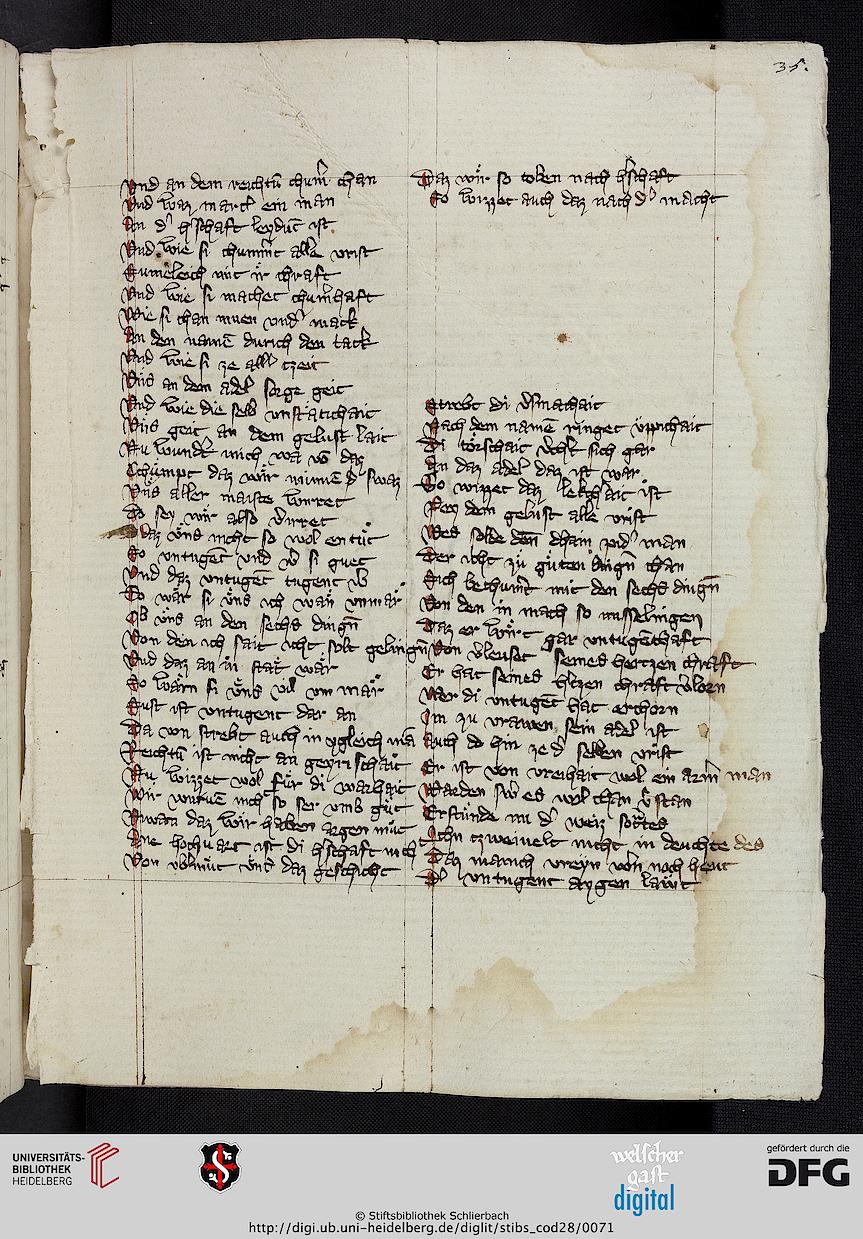 35.
Vnd an dem reichtū chum̄ chan
Vnd waz març ein man
An d' h'schaft leyduc̄ ist
Vnd wie si chummēt alle vrist
Eumeleich mit ir chraft
Vnd wie si machet chum̄haft
Wie si chan muen vnd' mack
An den namē durich den tack
Vnd wie si ze all' czeit
Vns an dem adel sorge geit
Vnd wie die selb vnstatichait
Vns geit an dem gelust lait
Nu wund't mich wa vō daz
Chumpt daz wir nimmē d' swaz
Vns aller maiste wirret
So sey wir also v'irret
daz vns nicht so wol en tut
So vntugēt vnd w' si guet
Vnd daz vntugēt tugent w'
So war si vns ich wan vnmar
Ob vns an den sechs dingn̄
Von den ich sait icht solt gelingn̄
Vnd daz an in stat war
So warn si vns vil vnmar
Sust ist vntugent dar an
Da von strebt auch in ygleich mā
Reichtū ist nicht an geytischait
Nu wizzet wol fur di warhait
Wir wuruē nich so ser vmb gut
Niwan daz wir haben argen mut
Ane hochuart ist di h'schaft nicht
Von vb'mut vns daz geschicht
Daz wir so toben nach h'schaft
So wizzet auch daz nach d' macht
Strebt di v'smachait
Nach dem namē ringet vppichait
Di torschait v'chst sich gar
An daz adel daz ist war
So wizzet daz lekchait ist
Pey dem gelust alle vrist
Wes solde den̄ dhain pid' man
Der icht zu guten dingn̄ chan
Sich bechum't mit den sechs dingn̄
Von den in mach so misselingen
Daz er wirt gar vntugēthaft
Von v'leuset seines hertzen chraft
Er hat seines h'tzen chraft v'lorn
Wer di vntugēt hat erchorn
Im zu vrawen sein adel ist
Auch do hin ze d' selben vrist
Er ist von vreihait wol ein arm̄ man
Warden sw' es wol chan v'stan
Erstunde nu d' weiz sortes
Ichn czweiuelt nicht in deuchte des
Daz manich vreyn von noch heut
D' vntugent aygen laut
UNIVERSITÄTS-
BIBLIOTHEK
HEIDELBERG
welscher
gast
digital
gefördert durch die
DFG
© Stiftsbibliothek Schlierbach
http://digi.ub.uni-heidelberg.de/diglit/stibs_cod28/0071